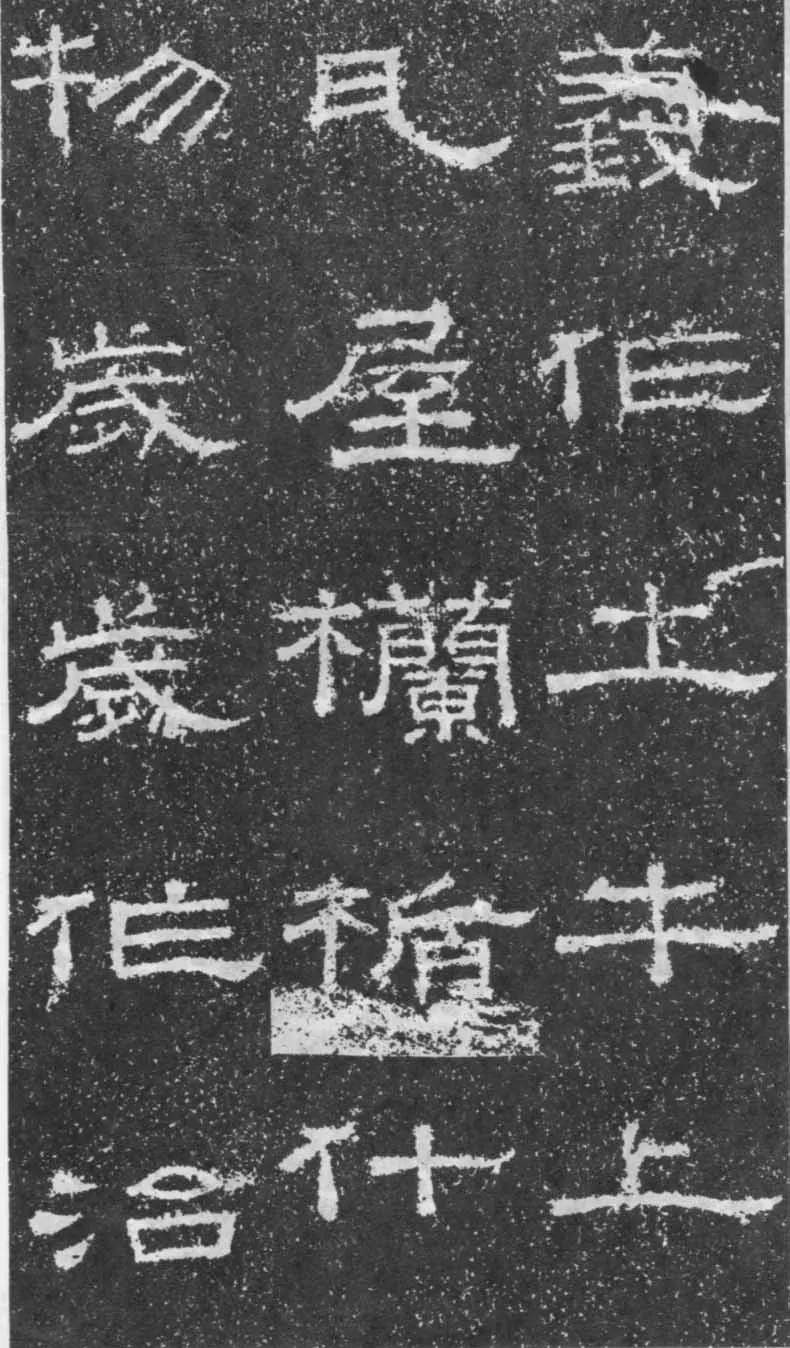 義作土牛上
瓦屋欗楯什
物歲歲作治